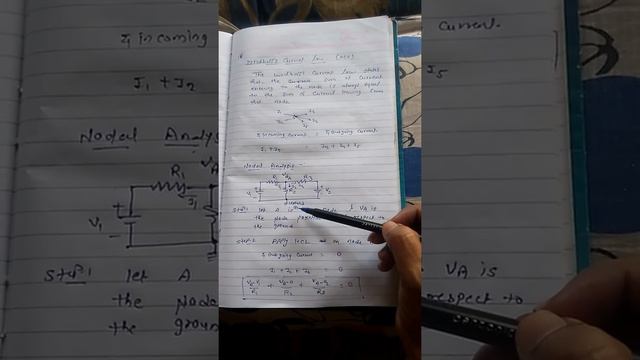 Kirchhoff's Current Law (KCL)
The Kirchhoff's Current Law states
that, the Sum of Current
entering to the node is always equal
to the Sum of Current leaving from
that node.
Σ Incoming Current = Σ Outgoing Current
I1 + I2 = I3 + I4 + I5
Nodal Analysis :-
R1 VA R3
V1 I1 R2 V2
Step:1 let A is & VA is
the node respect to
the ground
Step:2 Apply KCL on node
Σ Outgoing Current = 0
I1 + I2 + I3 = 0
VA-V1/R1 + VA-0/R2 + VA-V2/R3 = 0
Σ incoming
I1 + I2
Nodal Analysis
R1 VA
V1 I1
Step:1 let A
the node
the ground
Current.
I5
VA is
respect to